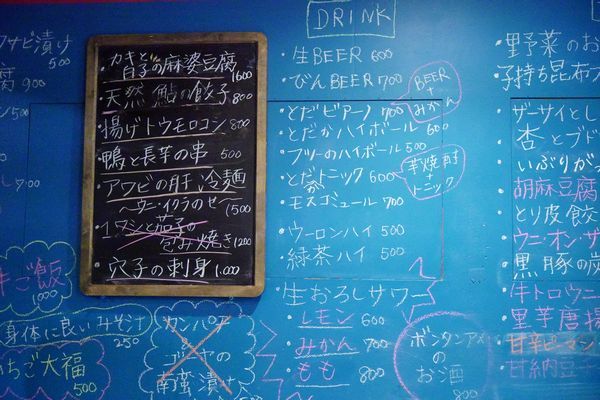 サビ漬け
腐 900
500
牛ご飯
1000
身体に良いみそ汁
250
いちご大福
500
カキと白子の麻婆豆腐
1600
天然 鮎の餃子 800
揚げトウモロコシ 800
鴨と長芋の串 500
アワビの肝、冷麺
〜ウニ・イクラのせ〜
1500
イワシと茄子の
包み焼き 1200
穴子の刺身 1,000
カンパチと
ゴーヤの
南蛮漬け
DRINK
・生BEER 600
・びんBEER 700
・とだビアーノ 700
BEER
+
みかん
・とだかハイボール 600
・フツーのハイボール 500
・とだかトニック 600
芋焼酎
+
トニック
・モスゴミュール 700
・ウーロンハイ 500
・緑茶ハイ 500
生おろしサワー
・レモン 600
・みかん 700
・もも 800
ボンタンアメ
のお酒
800
・野菜のお
・子持ち昆布
・ザーサイとし
・杏とブド
・いぶりが
・胡麻豆腐
・とり皮餃
・ウニ・オン・ザ
・黒豚の炭
・牛トロウニ
・里芋唐揚
・甘辛ピーマン
・甘納豆